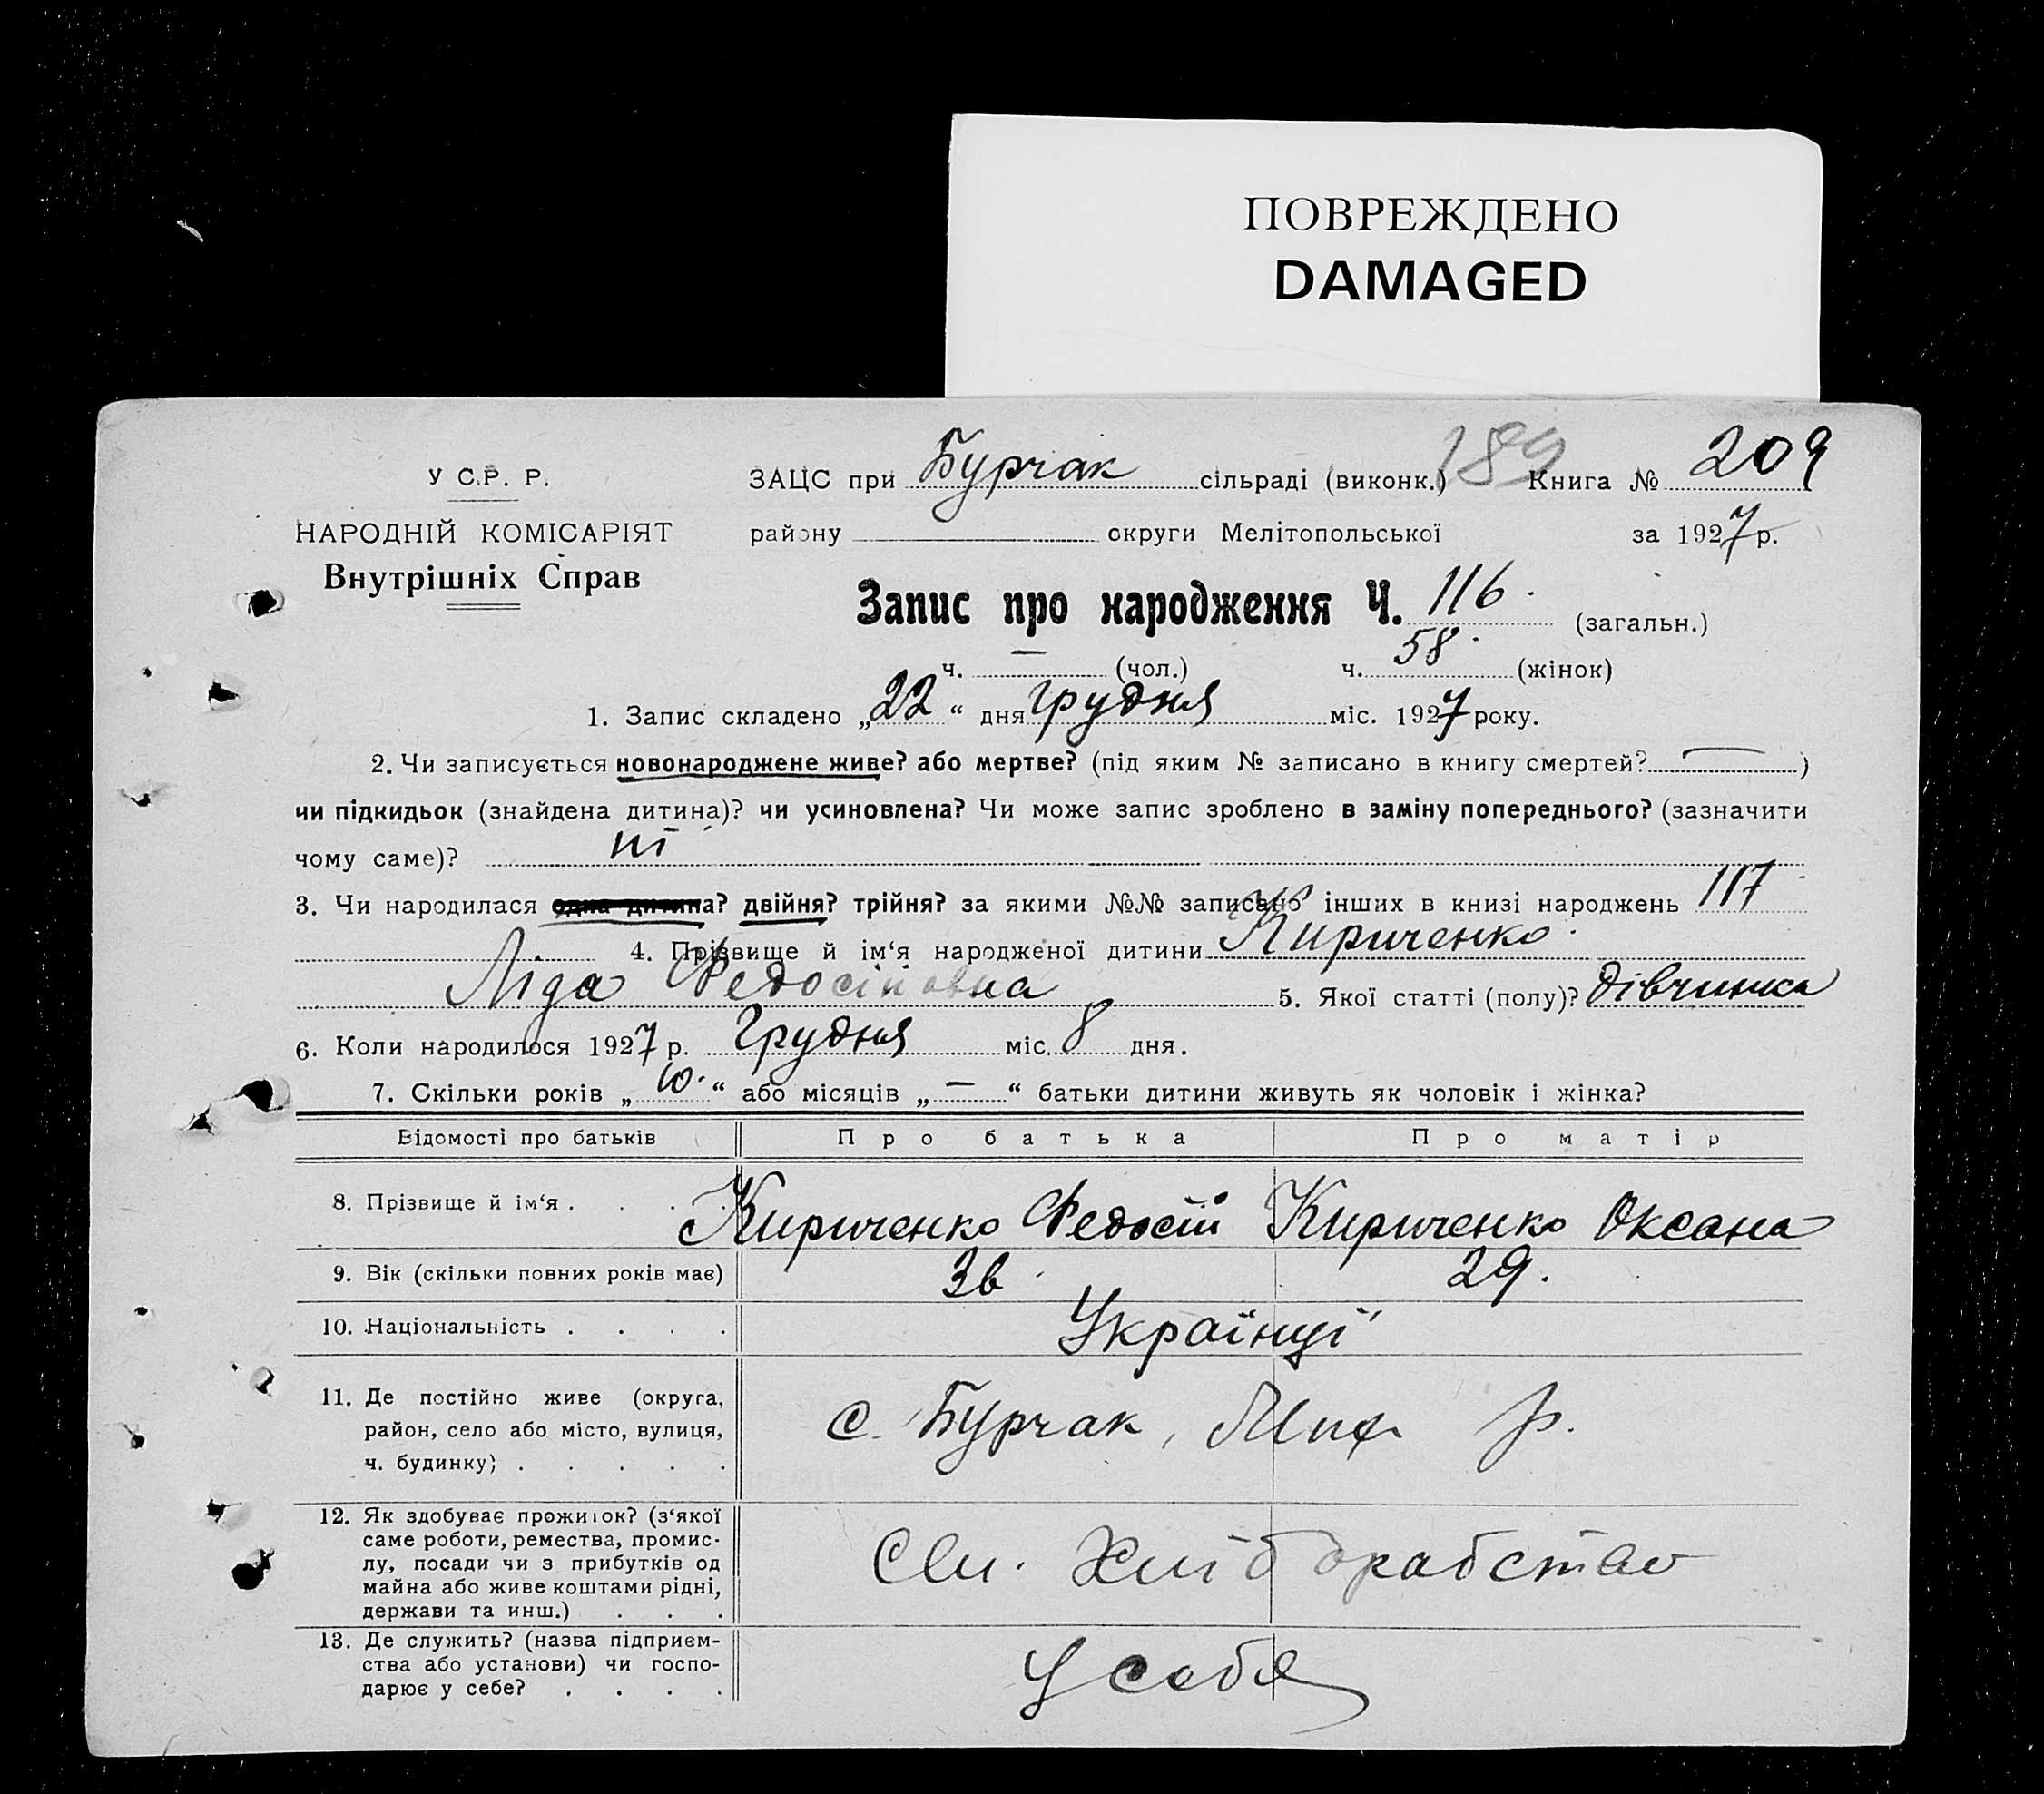 ПОВРЕЖДЕНО
DAMAGED
У С.Р. Р.
НАРОДНІЙ КОМІСАРІЯТ
Внутрішніх Справ
ЗАЦС при Бурчак сільраді (виконк.) 189 Книга № 209
району округи Мелітопольської за 1927 р.
Запис про народження Ч. 116. (загальн.)
ч. — (чол.) ч. 58. (жінок)
1. Запис складено „22“ дня Грудня міс. 1927 року.
2. Чи записується новонароджене живе? або мертве? (під яким № записано в книгу смертей? —)
чи підкидьок (знайдена дитина)? чи усиновлена? Чи може запис зроблено в заміну попереднього? (зазначити
чому саме)? ні
3. Чи народилася одна дитина? двійня? трійня? за якими №№ записано інших в книзі народжень 117
4. Прізвище й ім‘я народженої дитини Кириченко
Ліда Федосіївна 5. Якої статті (полу)? дівчинка
6. Коли народилося 1927 р. Грудня міс. 8 дня.
7. Скільки років „10.“ або місяців „—“ батьки дитини живуть як чоловік і жінка?
Відомості про батьків Про батька Про матір
8. Прізвище й ім‘я . . . . Кириченко Федосій Кириченко Оксана
9. Вік (скільки повних років має) 36 29.
10. Національність . . . . Українці
11. Де постійно живе (округа,
район, село або місто, вулиця,
ч. будинку) . . . . . с. Бурчак, Мих р.
12. Як здобуває прожиток? (з‘якої
саме роботи, ремества, промис-
лу, посади чи з прибутків од
майна або живе коштами рідні,
держави та инш.) . . . Хліборабство
13. Де служить? (назва підприєм-
ства або установи) чи госпо-
дарює у себе? . . . . У себе